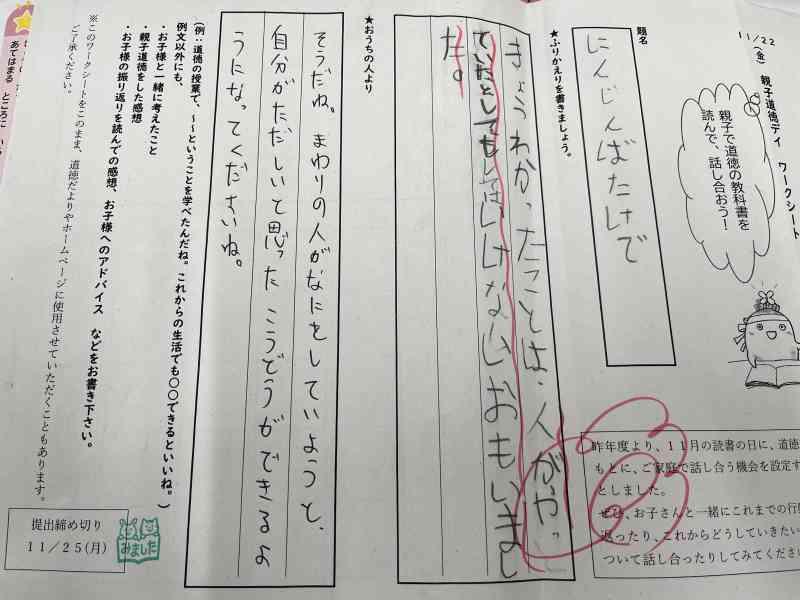 11/22
(金)
親子道徳デイ ワークシート
親子で道徳の教科書を
読んで、話し合おう!
昨年度より、11月の読書の日に、道徳
もとに、ご家庭で話し合う機会を設定す
としました。
ぜひ、お子さんと一緒にこれまでの行動
返ったり、これからどうしていきたい
ついて話し合ったりしてみてくださ
題名
にんじんばたけで
★ふりかえりを書きましょう。
きょうわかったことは、人がやっ
ていたとしてもしてはいけないとおもいまし
た。
★おうちの人より
そうだね。まわりの人がなにをしていようと、
自分がただしいと思ったこうどうができるよ
うになってくださいね。
(例:道徳の授業で、~~ということを学べたんだね。これからの生活でも○○できるといいね。)
例文以外にも、
・お子様と一緒に考えたこと
・親子道徳をした感想
・お子様の振り返りを読んでの感想、お子様へのアドバイス などをお書き下さい。
※このワークシートをこのまま、道徳だよりやホームページに使用させていただくこともあります。
ご了承ください。
提出締め切り
11/25(月)
みました
あてはまる ところに